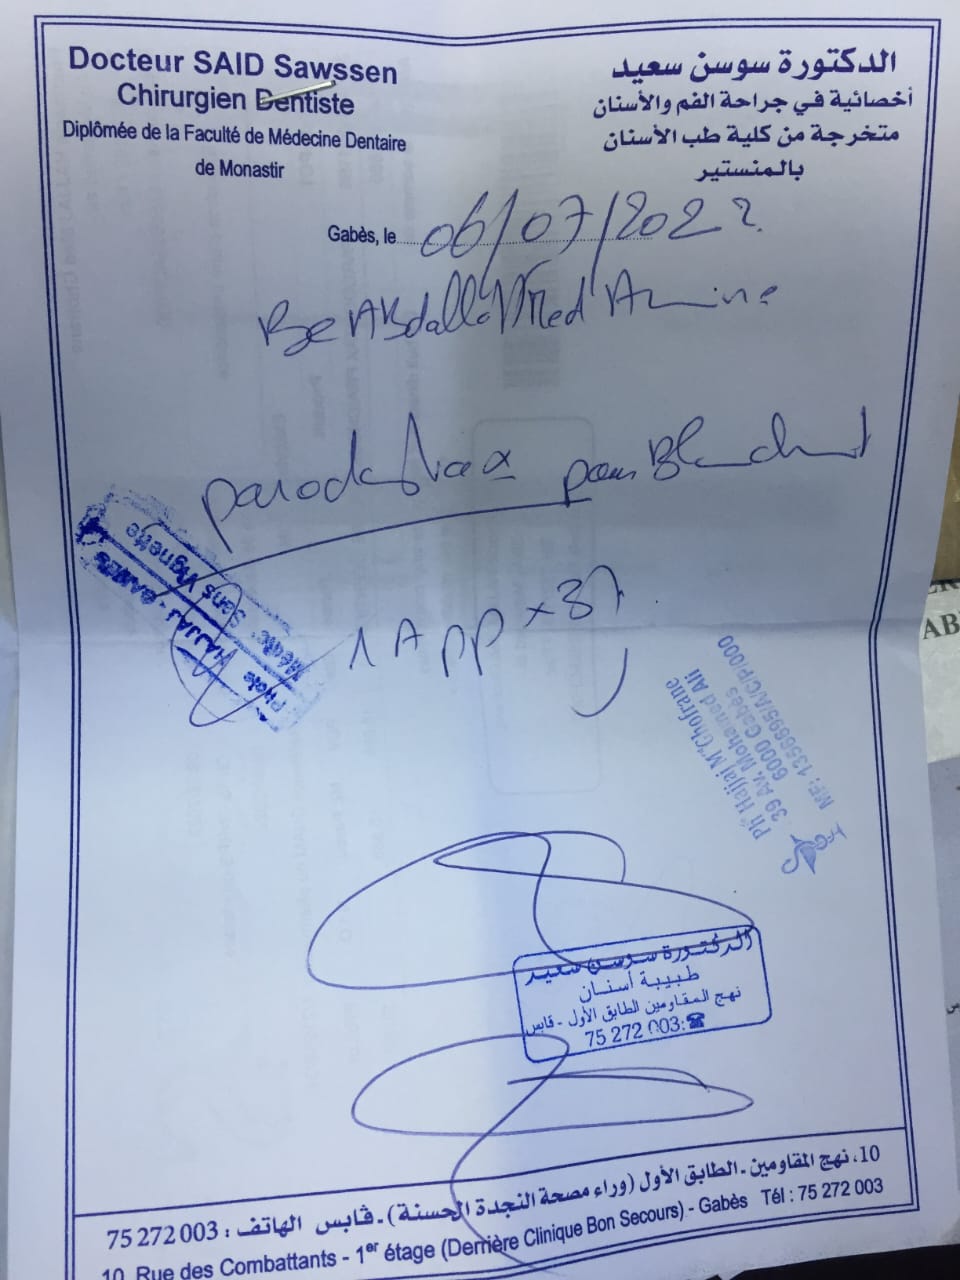 Docteur SAID Sawssen
Chirurgien Dentiste
Diplômée de la Faculté de Médecine Dentaire
de Monastir
الدكتورة سوسن سعيد
أخصائية في جراحة الفم والأسنان
متخرجة من كلية طب الأسنان
بالمنستير
Gabès, le 06/07/2022
Be Abdalla Med Amine
parodontax pour Blanchant
1 App x 3j
Phcie HAJJAJ - GABES
Médic. Sans Vignette
Ph Hajjaj M. Ghofrane
39 Av. Mohamed Ali
6000 Gabes
MF: 1356695/A/C/P/000
الدكتورة سوسن سعيد
طبيبة أسنان
نهج المقاومين الطابق الأول - قابس
75 272 003:☎
10، نهج المقاومين - الطابق الأول (وراء مصحة النجدة الحسنة) - قابس الهاتف : 003 272 75
10, Rue des Combattants - 1er étage (Derrière Clinique Bon Secours) - Gabès Tél : 75 272 003